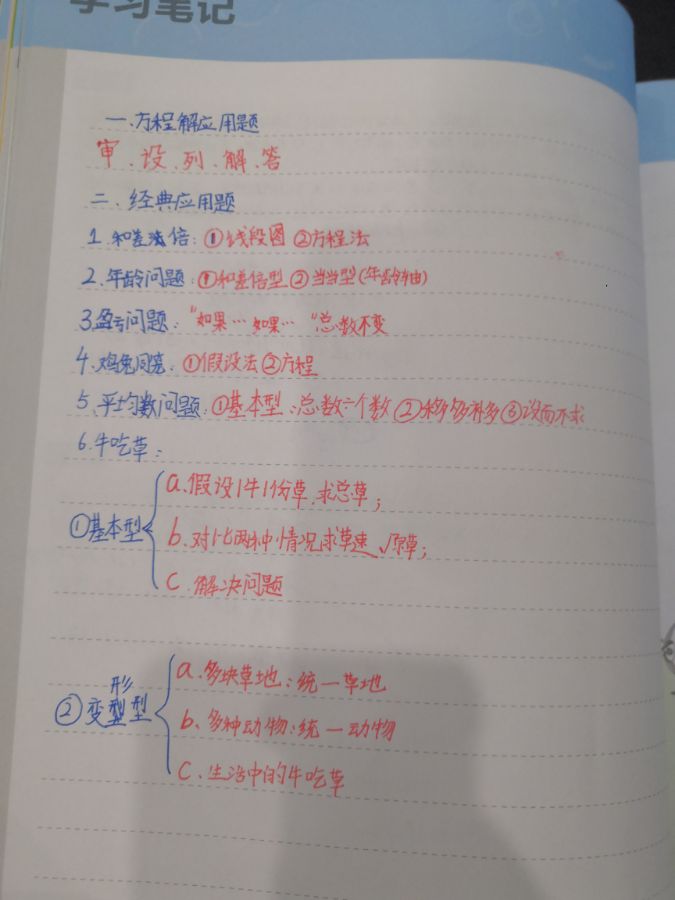 学习笔记
一、方程解应用题
审、设、列、解、答
二、经典应用题
1.和差倍:①线段图 ②方程法
2.年龄问题:①和差倍型 ②当当型(年龄轴)
3.盈亏问题:“如果…如果…”总数不变
4.鸡兔同笼:①假设法 ②方程
5.平均数问题:①基本型:总数÷个数 ②移多补多 ③设而不求
6.牛吃草:
①基本型
a.假设1牛1份草,求总草;
b.对比两种情况求草速、原草;
c.解决问题
②变形型
a.多块草地:统一草地
b、多种动物:统一动物
c、生活中的牛吃草